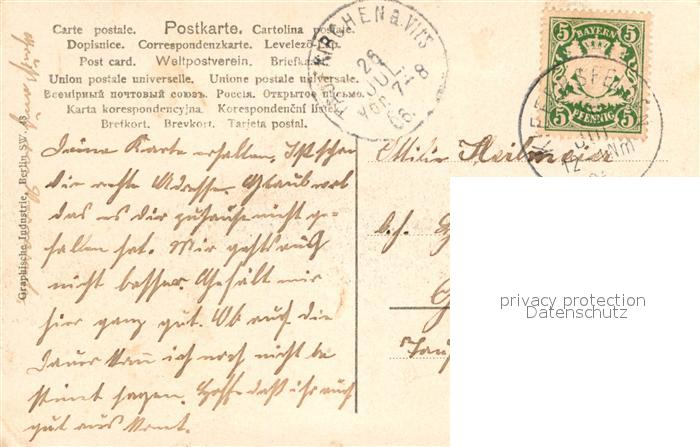 Carte postale. Postkarte. Cartolina postale.
Dopisnice. Correspondenzkarte. Levelező-lap.
Post card. Weltpostverein. Briefkaart.
Union postale universelle. Unione postale universale.
Всемірный почтовый союзъ. Россія. Открытое письмо.
Karta korespondencyjna. Korespondenční lístek.
Brefkort. Brevkort. Tarjeta postal.
Graphische Industrie, Berlin SW. 48
26
JUL
7-8
5 BAYERN 5
5 PFENNIG 5
JUL
Deine Karte erhalten. Ist schon
die rechte Adresse. Glaub wol
das es dir zuhause nicht ge-
fallen hat. Mir gehts auch
nicht besser. Gefält mir
hier ganz gut. Ob auf die
Dauer kann ich noch nicht be
stimt sagen. Hoffe daß ihr auch
gut aus
Heilmeier
privacy protection
Datenschutz